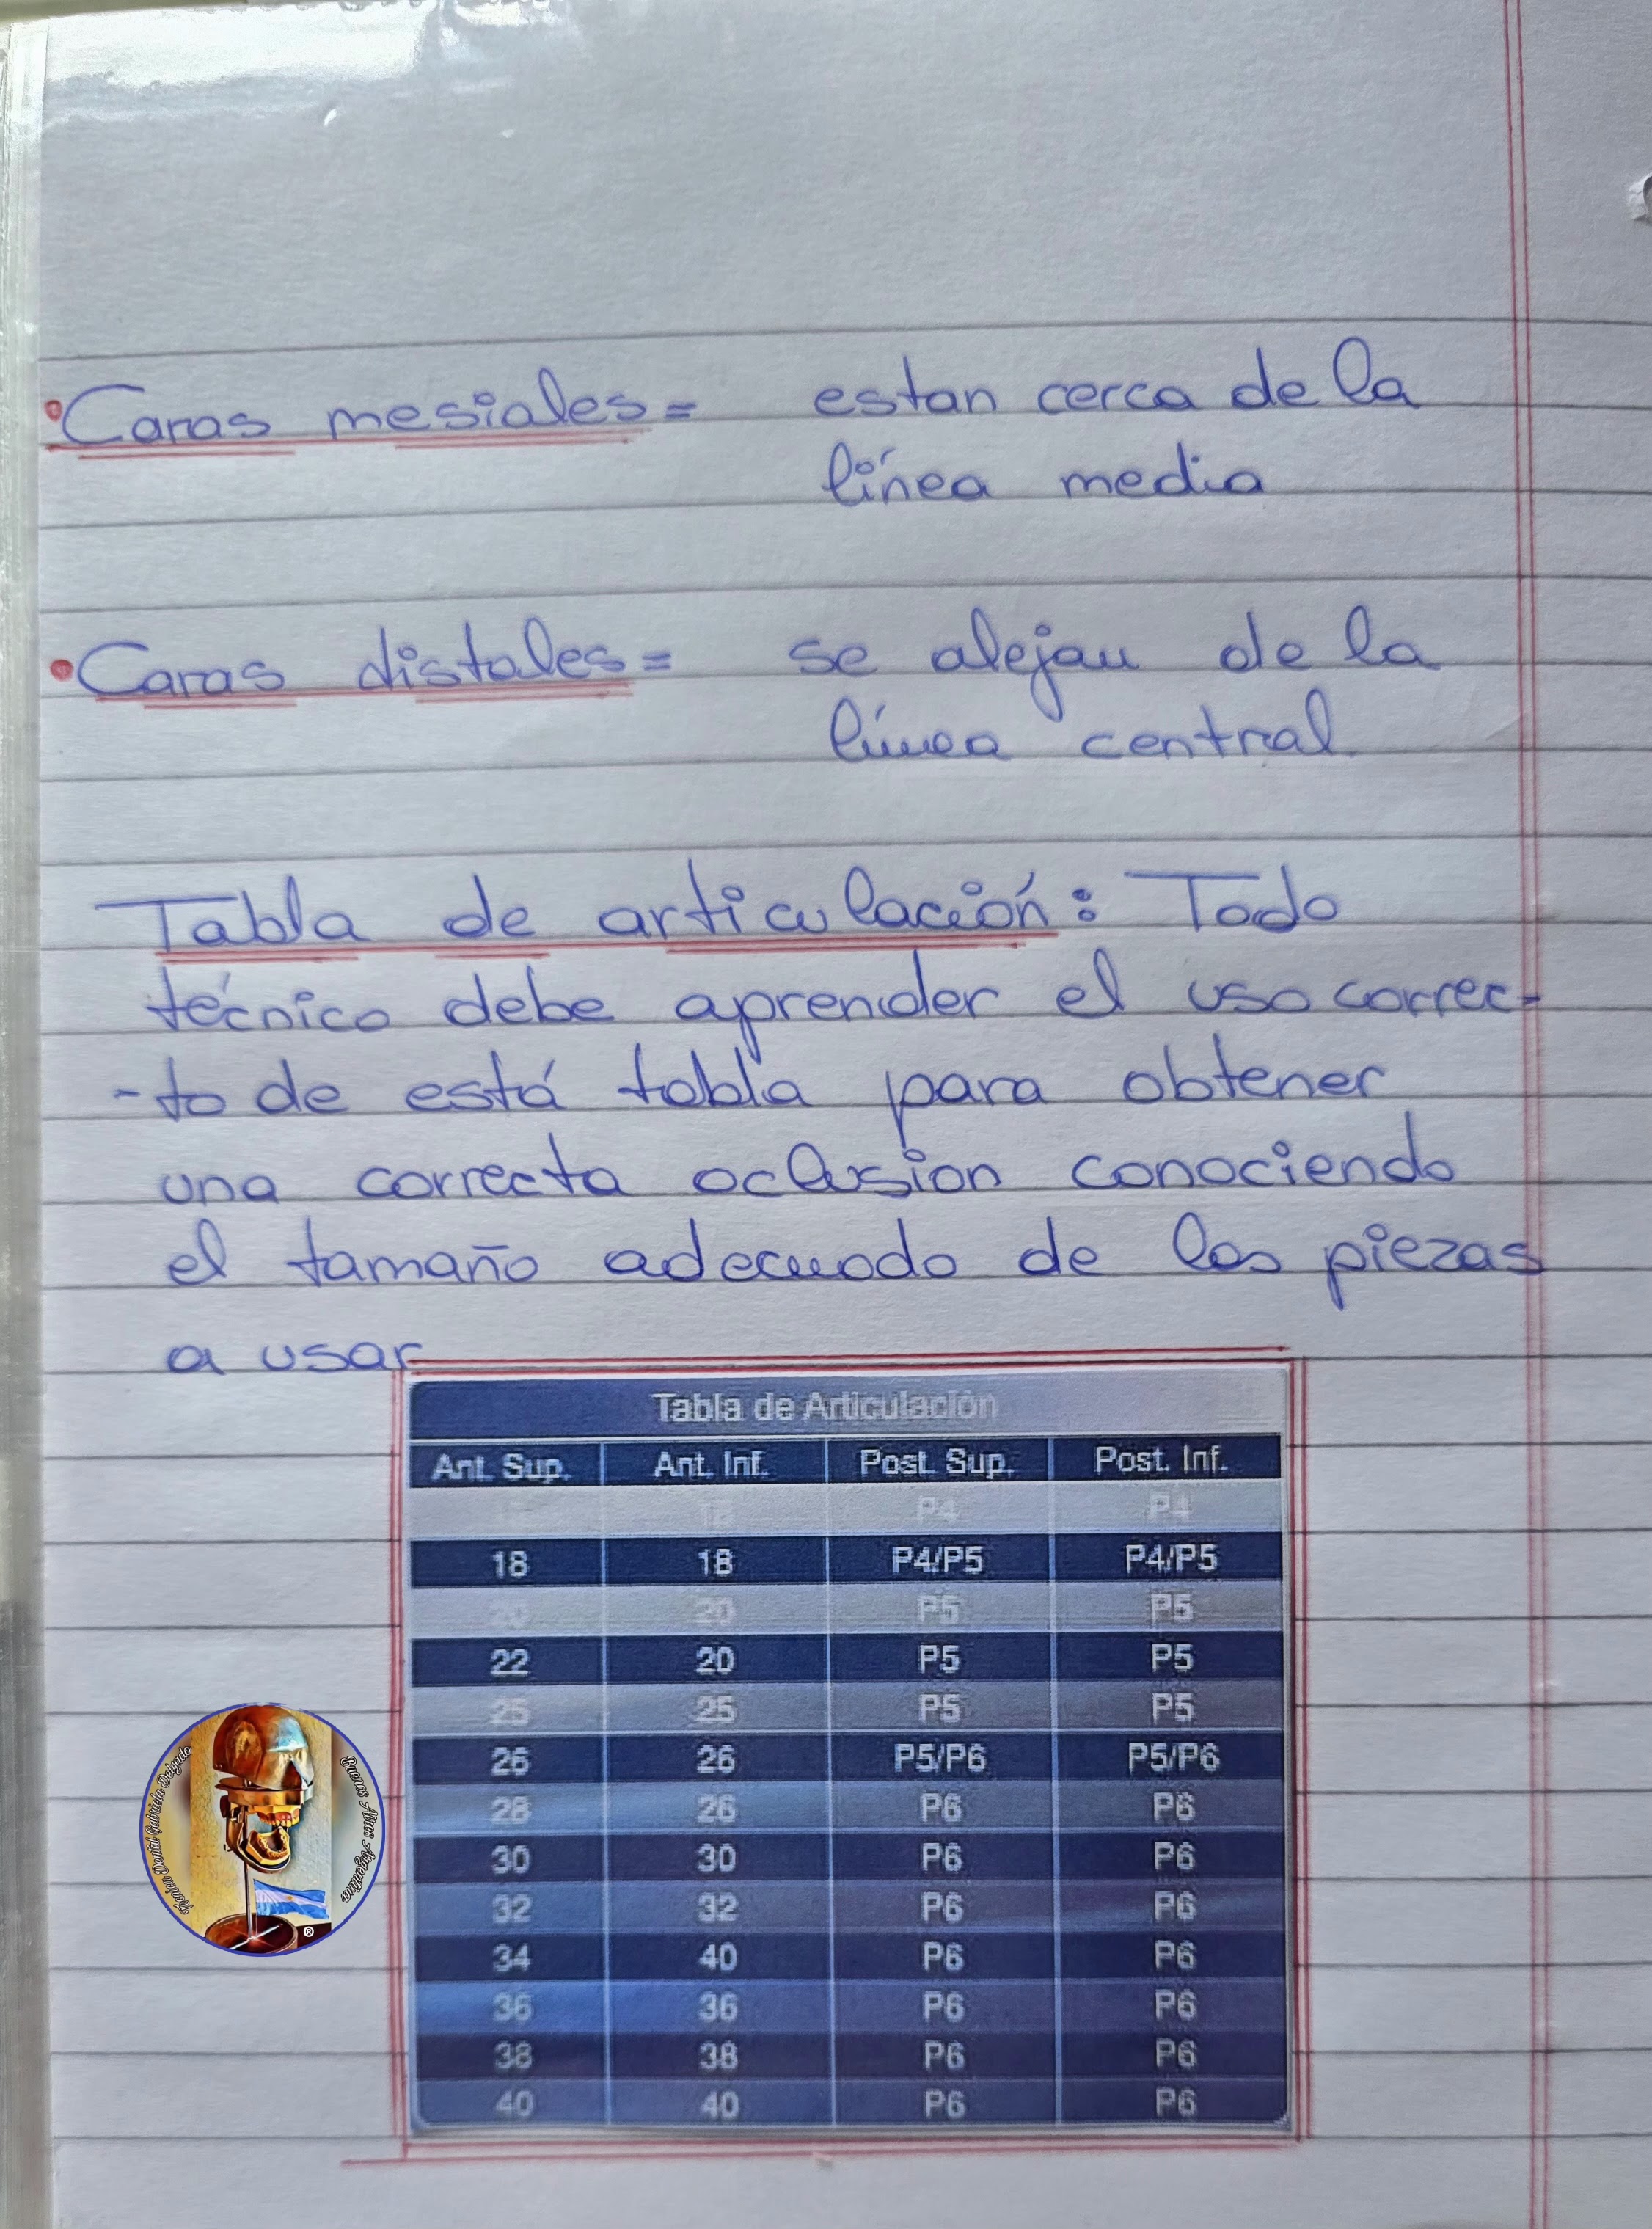 •Caras mesiales= estan cerca de la
línea media
•Caras distales= se alejan de la
línea central
Tabla de articulación: Todo
técnico debe aprender el uso correc-
-to de está tabla para obtener
una correcta oclusion conociendo
el tamaño adecuado de las piezas
a usar
Tabla de Articulación
Ant. Sup. Ant. Inf. Post. Sup. Post. Inf.
18 P4 P4
18 18 P4/P5 P4/P5
20 20 P5 P5
22 20 P5 P5
25 25 P5 P5
26 26 P5/P6 P5/P6
28 26 P6 P6
30 30 P6 P6
32 32 P6 P6
34 40 P6 P6
36 36 P6 P6
38 38 P6 P6
40 40 P6 P6
Técnica Dental Gabriela Delgado
Buenos Aires Argentina
®